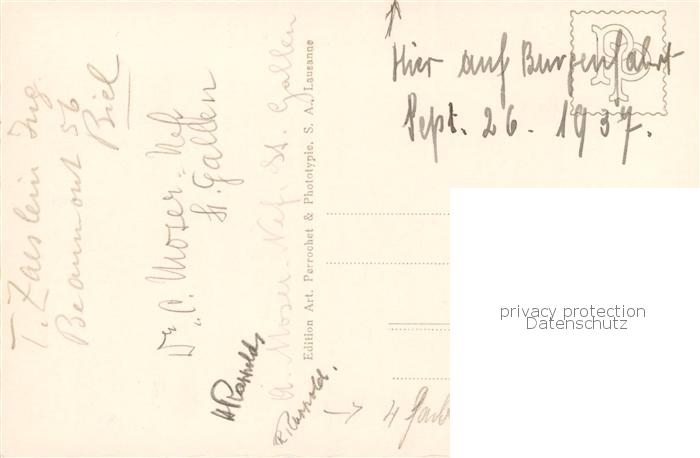 Hier auf Burgenfahrt
Sept. 26. 1937.
T. Zaeslein Ing.
Beaumont 56
Biel
Dr. C. Moser-Nef
St. Gallen
A. Moser-Nef. St. Gallen
Edition Art. Perrochet & Phototypie. S. A., Lausanne
PP
privacy protection
Datenschutz
4